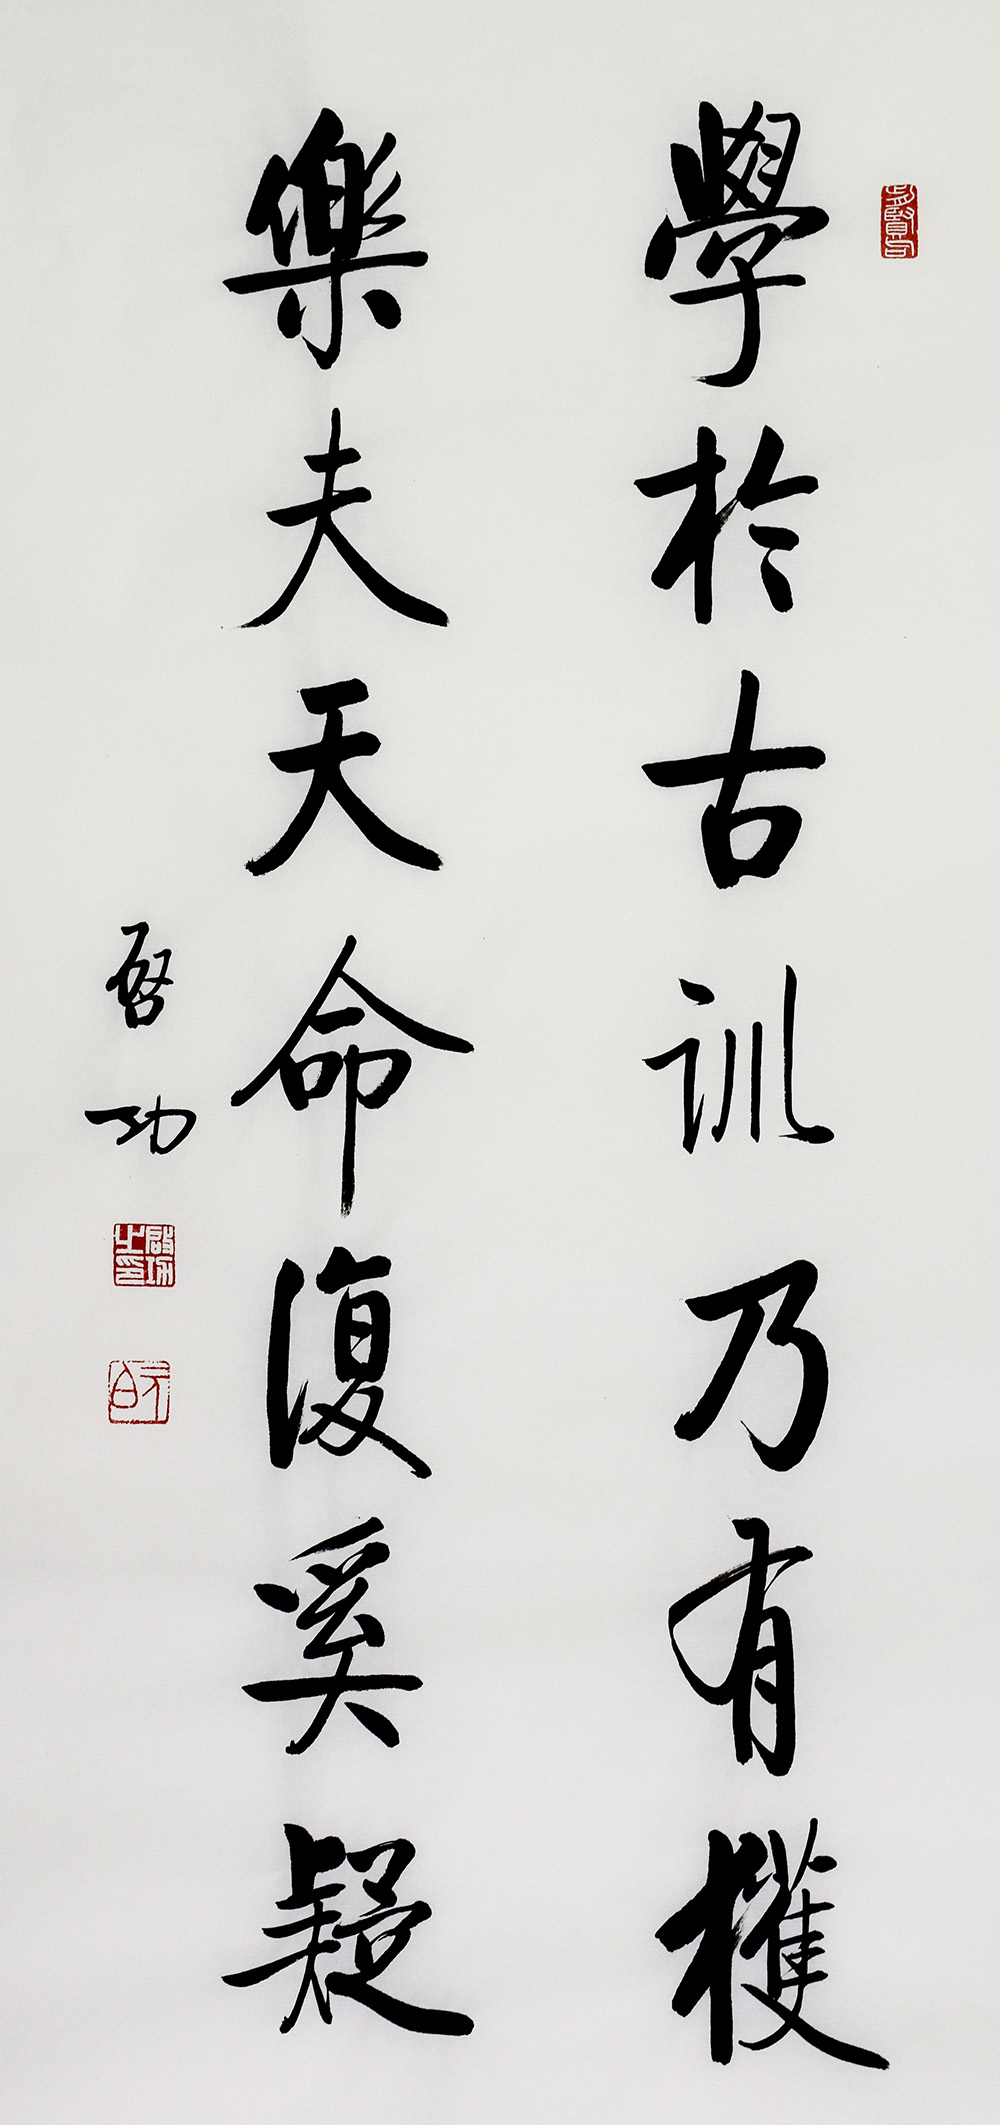 學於古訓乃有獲
樂夫天命復奚疑
啓功
啟功之印
元白